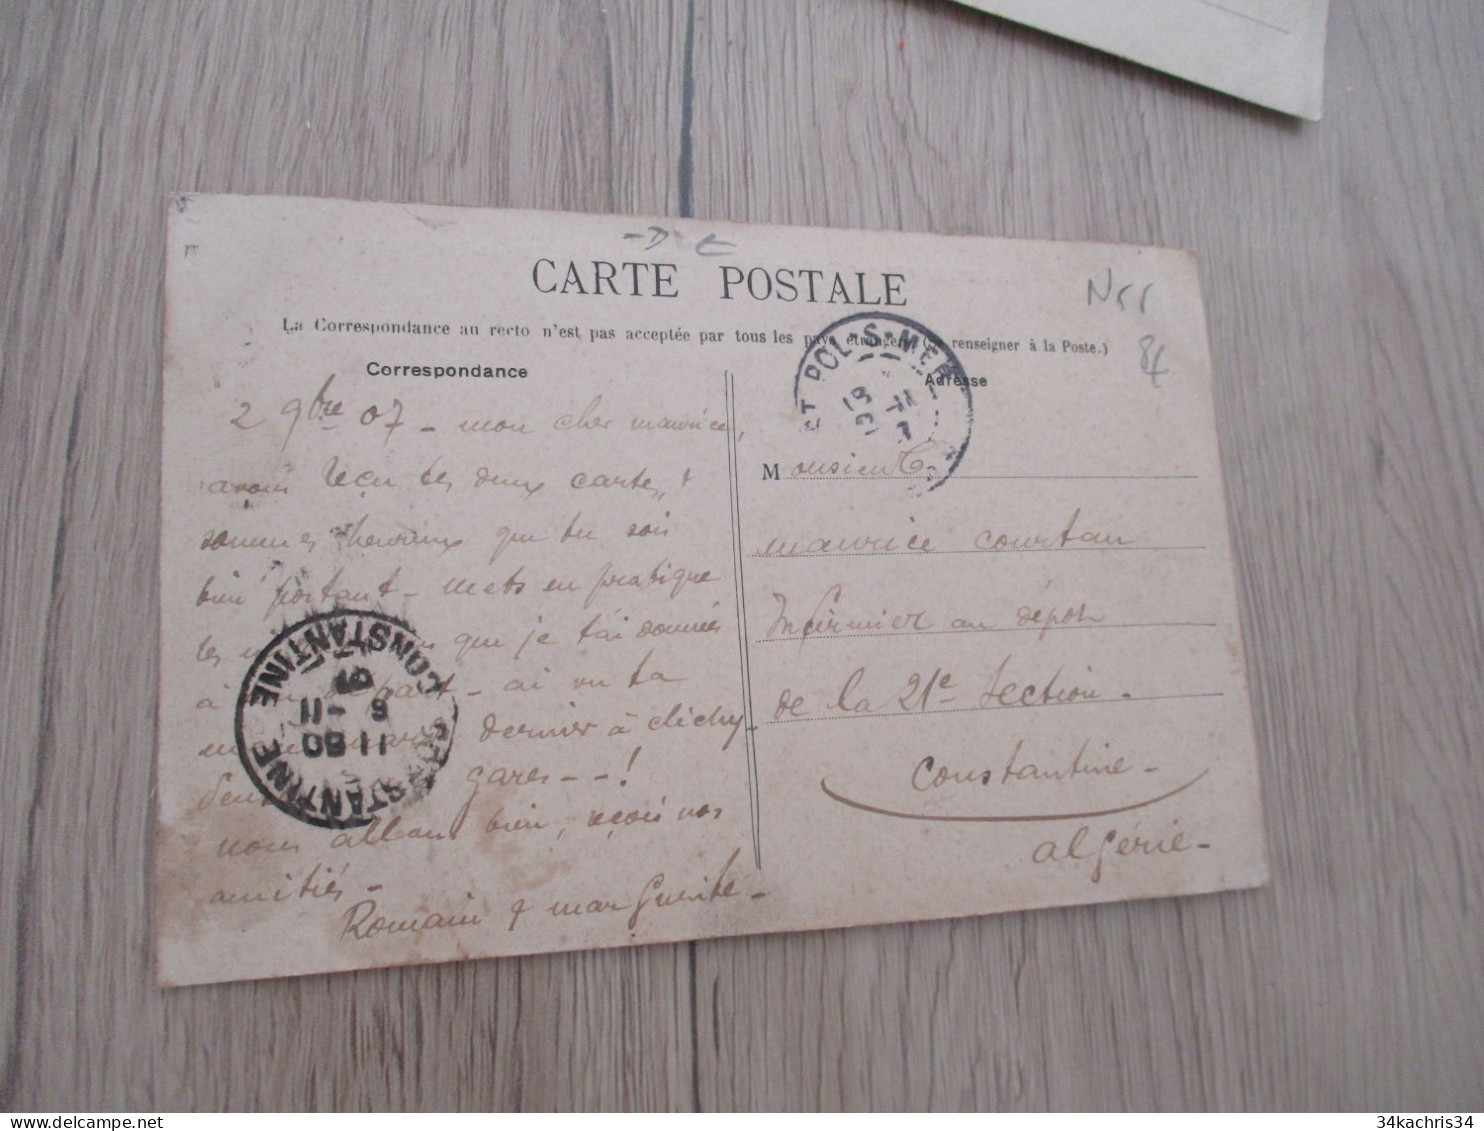 CARTE POSTALE
La Correspondance au recto n'est pas acceptée par tous les pays étrangers (Se renseigner à la Poste.)
Correspondance
2 9bre 07 - mon cher maurice,
avons reçu tes deux cartes, &
sommes heureux que tu sois
bien portant - mets en pratique
les que je t'ai donnés
à départ - ai vu ta
dernier à clichy -
gares - - !
nous allons bien, reçois nos
amitiés -
Romain & marguerite -
N55
84
ST POL-S-MER
Adresse
Monsieur
maurice courtau
Infirmier au dépot
de la 21e Section -
Constantine -
algérie -
CONSTANTINE
CONSTANTINE
11 30
8 -11
07
34kachris34